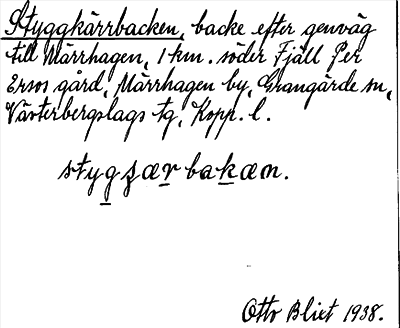 Styggkärrbacken, backe efter genväg
till Märrhagen, 1 km. söder Fjäll Per
Ersos gård, Märrhagen by, Grangärde sn,
Västerbergslags tg, Kopp. l.
stygʒærbakæn.
Otto Blixt 1938.